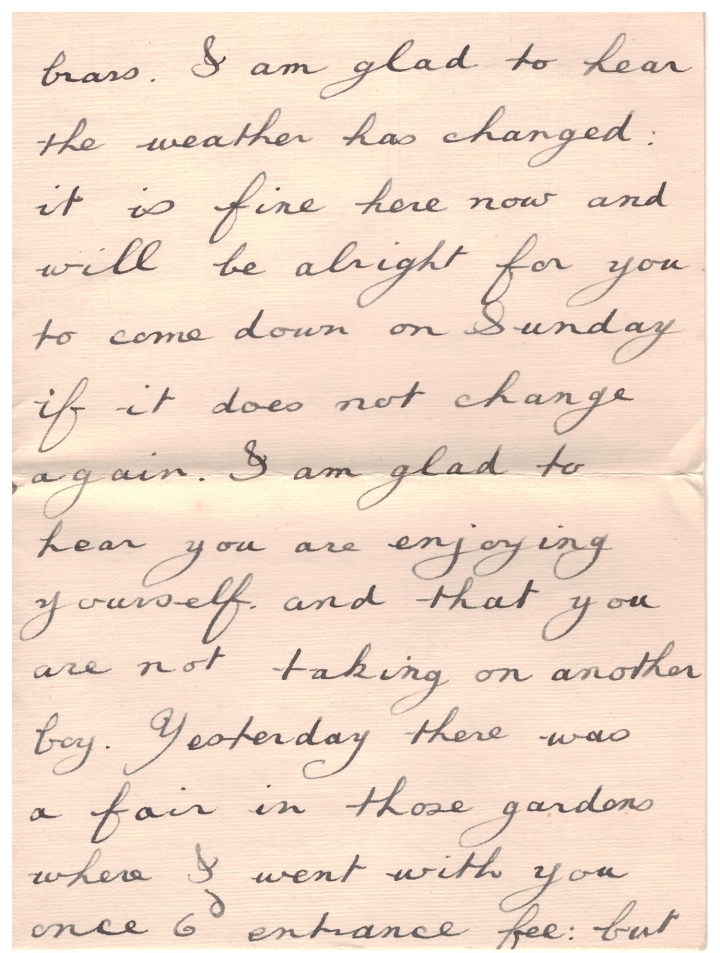 brass. I am glad to hear
the weather has changed:
it is fine here now and
will be alright for you
to come down on Sunday
if it does not change
again. I am glad to
hear you are enjoying
yourself. and that you
are not taking on another
boy. Yesterday there was
a fair in those gardens
where I went with you
once 6d entrance fee: but